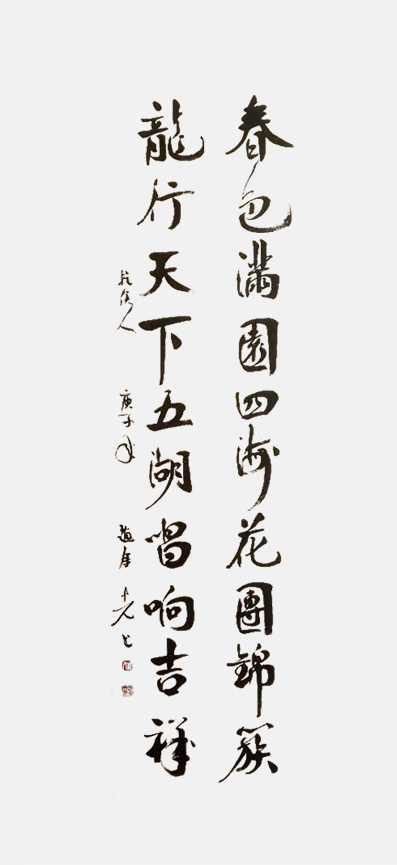 春色滿園四海花團錦簇
龍行天下五湖唱响吉祥
庚子年